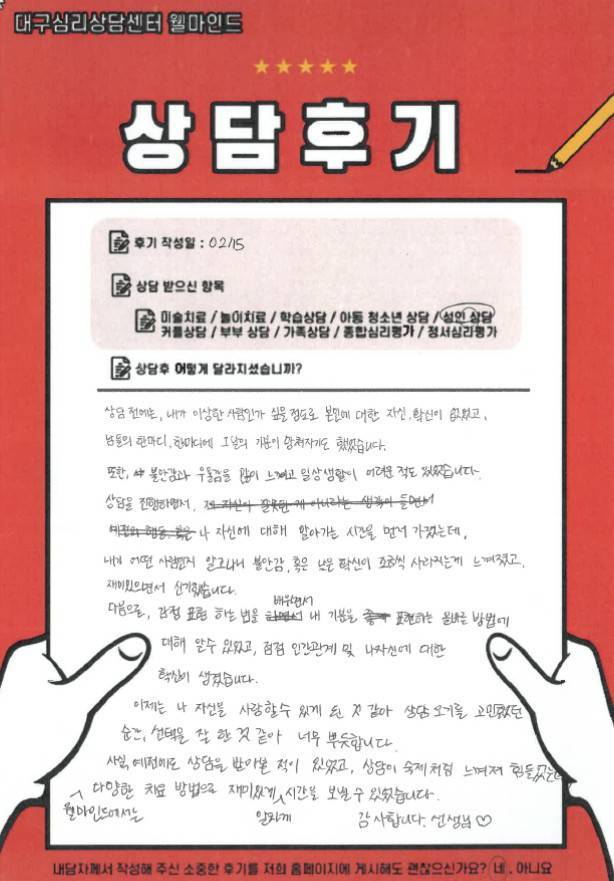 대구심리상담센터 웰마인드
상담후기
후기 작성일 : 02/15
상담 받으신 항목
미술치료 / 놀이치료 / 학습상담 / 아동 청소년 상담 / 성인 상담
커플상담 / 부부 상담 / 가족상담 / 종합심리평가 / 정서심리평가
상담후 어떻게 달라지셨습니까?
상담 전에는, 내가 이상한 사람인가 싶을 정도로 본인에 대한 자신, 확신이 없었고,
남들의 한마디, 한마디에 그날의 기분이 망쳐지기도 했었습니다.
또한, 불안감과 우울감을 많이 느끼고 일상생활이 어려운 적도 있었습니다.
상담을 진행하면서, 제 자신이 잘못된 게 아니라는 생각이 들면서
나 자신에 대해 알아가는 시간을 먼저 가졌는데,
내가 어떤 사람인지 알고나니 불안감, 혹은 낮은 확신이 조금씩 사라지는게 느껴졌고,
재미있으면서 신기했습니다.
배우면서
다음으로, 감정 표현 하는 법을 하면서 내 기분을 표현하는 올바른 방법에
대해 알 수 있었고, 점점 인간관계 및 나자신에 대한
확신이 생겼습니다.
이제는 나 자신을 사랑할 수 있게 된 것 같아 상담 오기를 고민했던
순간, 선택을 잘 한 것 같아 너무 뿌듯합니다.
사실, 예전에도 상담을 받아본 적이 있었고, 상담이 숙제처럼 느껴져 힘들었는데
다양한 치료 방법으로 재미있게 시간을 보낼 수 있었습니다.
웰마인드에서는 알차게 감사합니다. 선생님 ♡
내담자께서 작성해 주신 소중한 후기를 저희 홈페이지에 게시해도 괜찮으신가요? 네 , 아니요